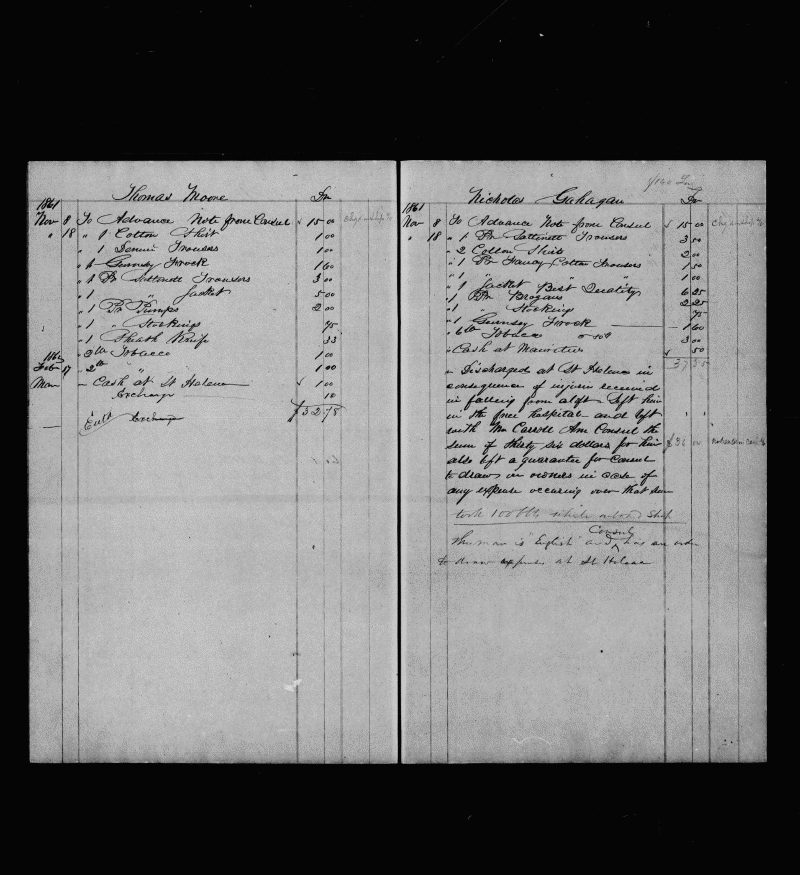 Thomas Moore Dr
1861
Nov 8 To Advance Note from Consul 15 00
" 18 " 1 Cotton Shirt 1 00
" 1 Denim Trousers 1 00
" 1 Guernsey Frock 1 60
" 1 Pr Sattinett Trousers 3 00
" 1 " Jacket 5 00
" 1 Pr Pumps 2 00
" 1 " Stockings 75
" 1 Sheath Knife 33
1862
" 3 lb Tobacco 1 00
Feb 17 " 2 lb " 1 00
Mar " Cash at St Helena 1 00
Exchange 10
$32 78
Exchange
1/140 Lay
Nicholas Gahagan Dr
1861
Nov 8 To Advance Note from Consul 15 00
" 18 " 1 Pr Sattinett Trousers 3 00
" 2 Cotton Shirt 2 00
" 1 Pr Fancy Cotton Trousers 1 50
" 1 " " " 1 00
" 1 Jacket Best Quality 6 25
" 1 Pr Brogans 2 25
" 1 " Stockings 75
" 1 Guernsey Frock 1 60
" 6 lb Tobacco 3 00
" Cash at Mauritius 50
37 35
" Discharged at St Helena in
consequence of injuries received
in falling from aloft left him
in the free hospital and left
with Mr Carroll Am Consul the
sum of thirty six dollars for him $36 00
also left a guarantee for Consul
to draw on owners in case of
any expense occuring over that sum
took 100 bbls while aboard Ship
This man is "English" and Consul has an order
to draw expenses at St Helena